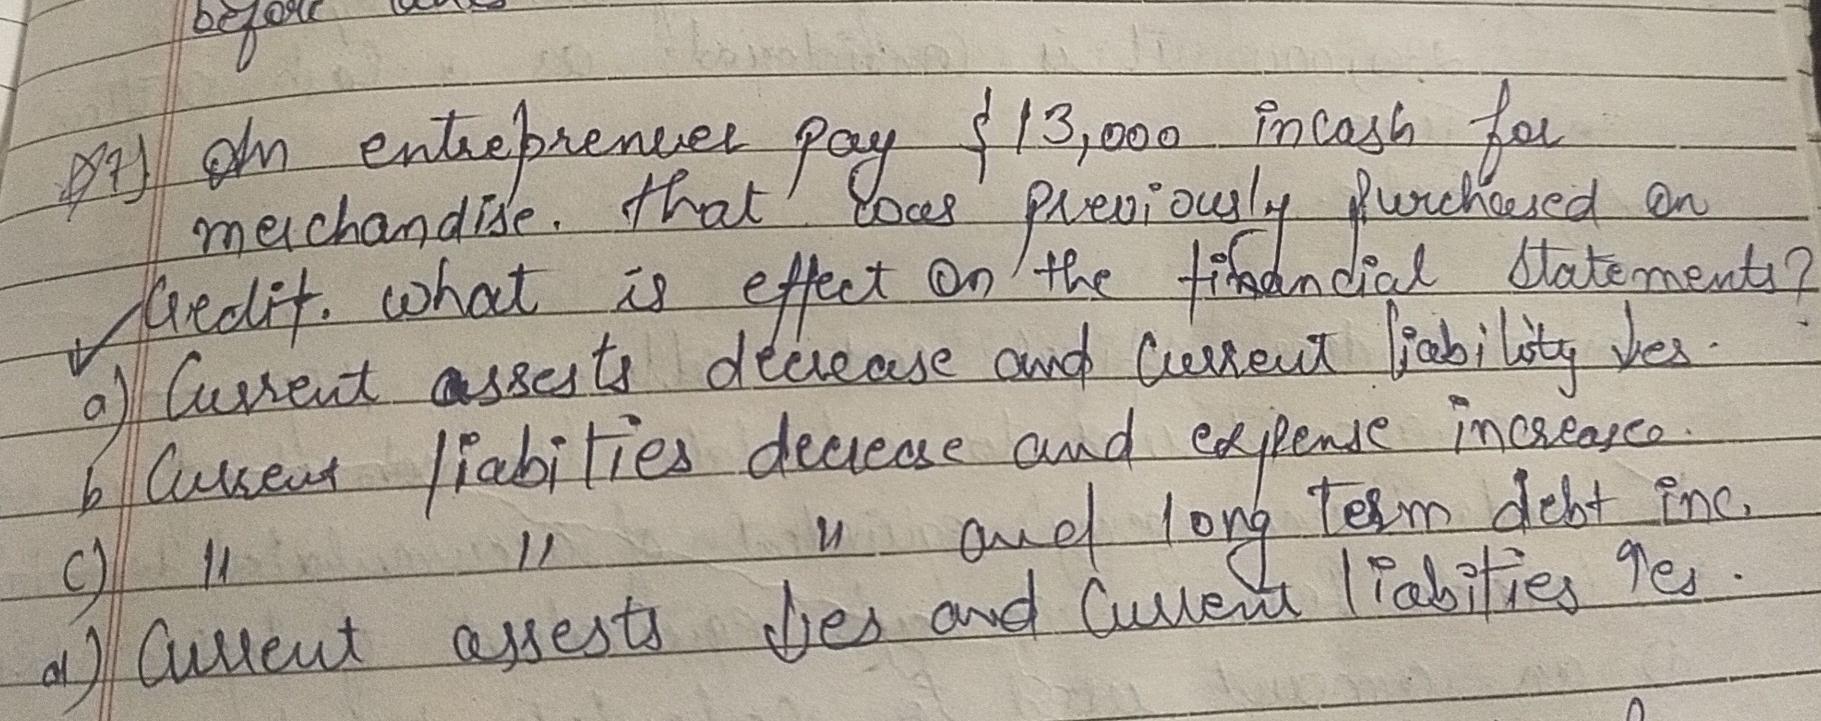 before
Q7) An entreprenuer pay $13,000 incash for
merchandise. that was previously purchased on
Credit. what is effect on the finandial statements?
a) Current assests decrease and current liability ↓es.
b Current liabilities decrease and expense increase.
c) " " " and long term debt inc.
d) Current assests ↓es and current liabities ↑es.